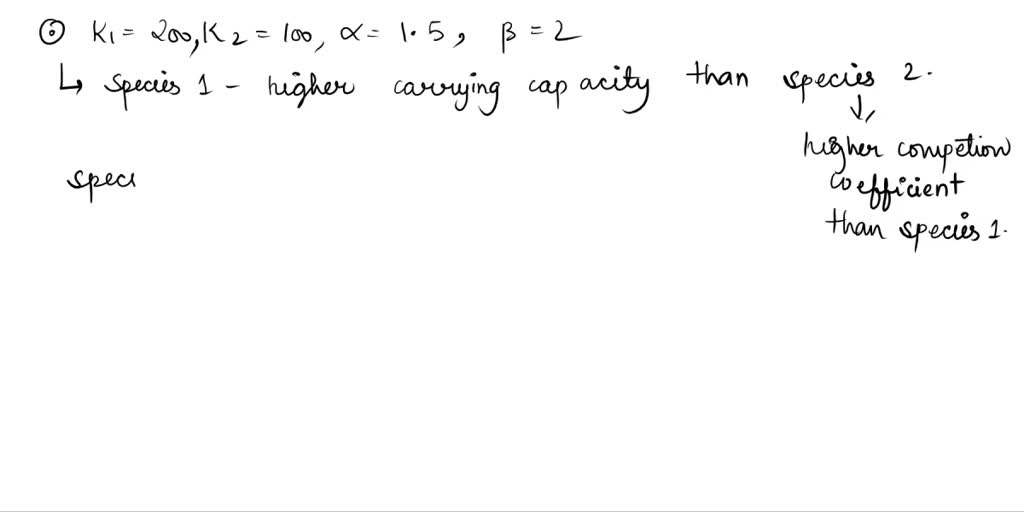 ⊙ K1 = 200, K2 = 100, α = 1.5, β = 2
↳ Species 1 - higher carrying capacity than species 2.
↓
higher compētion
coefficient
than species 1.
speci